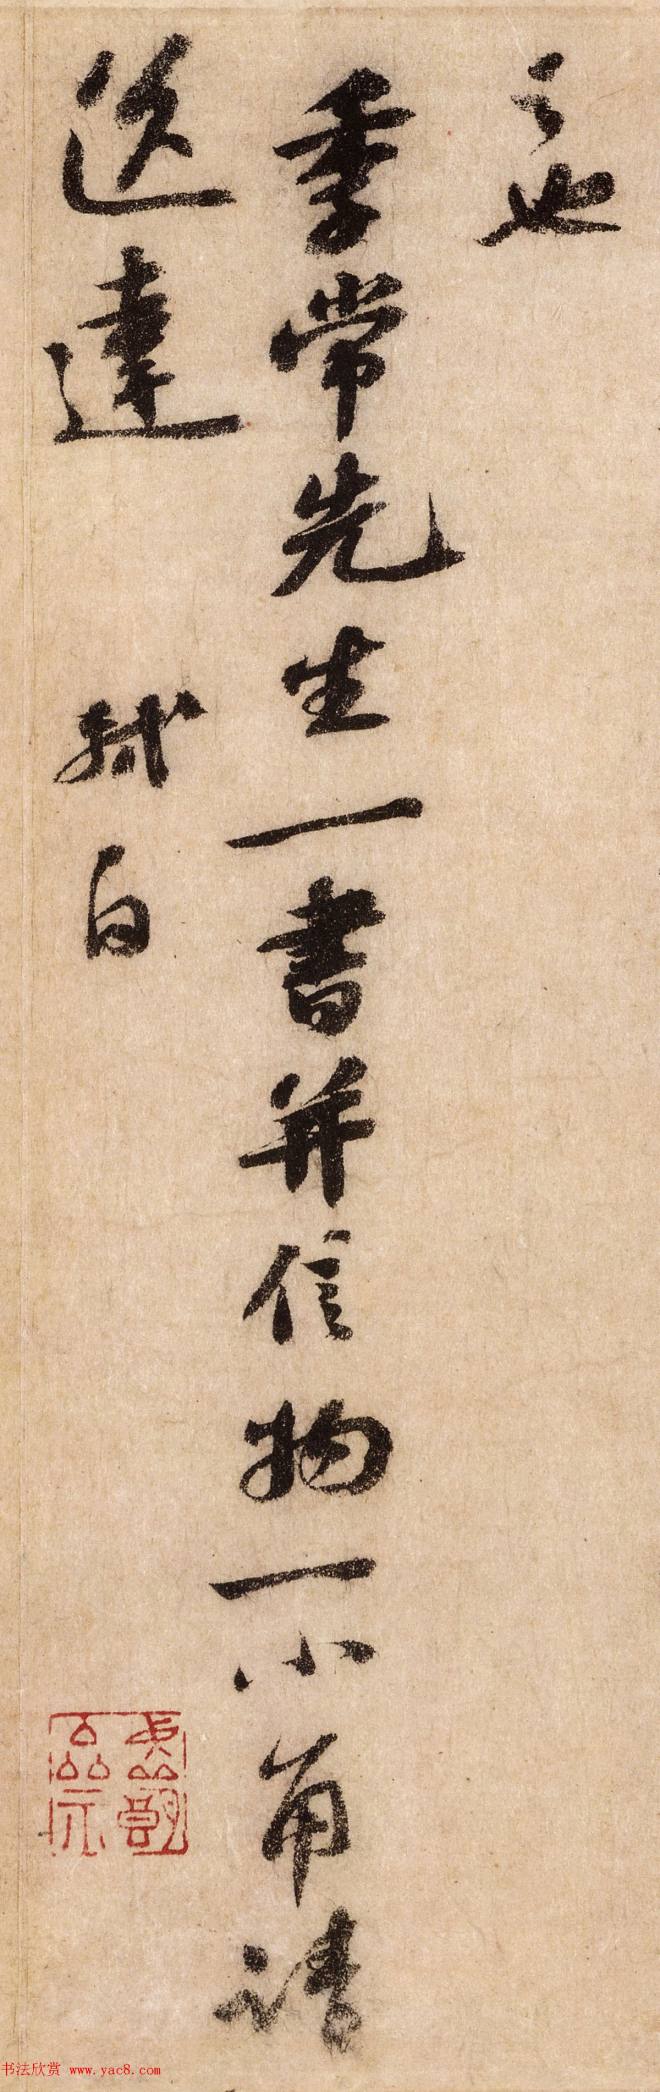 之也
季常先生一書并信物一小角請
送達
軾白
书法欣赏 www.yac8.com